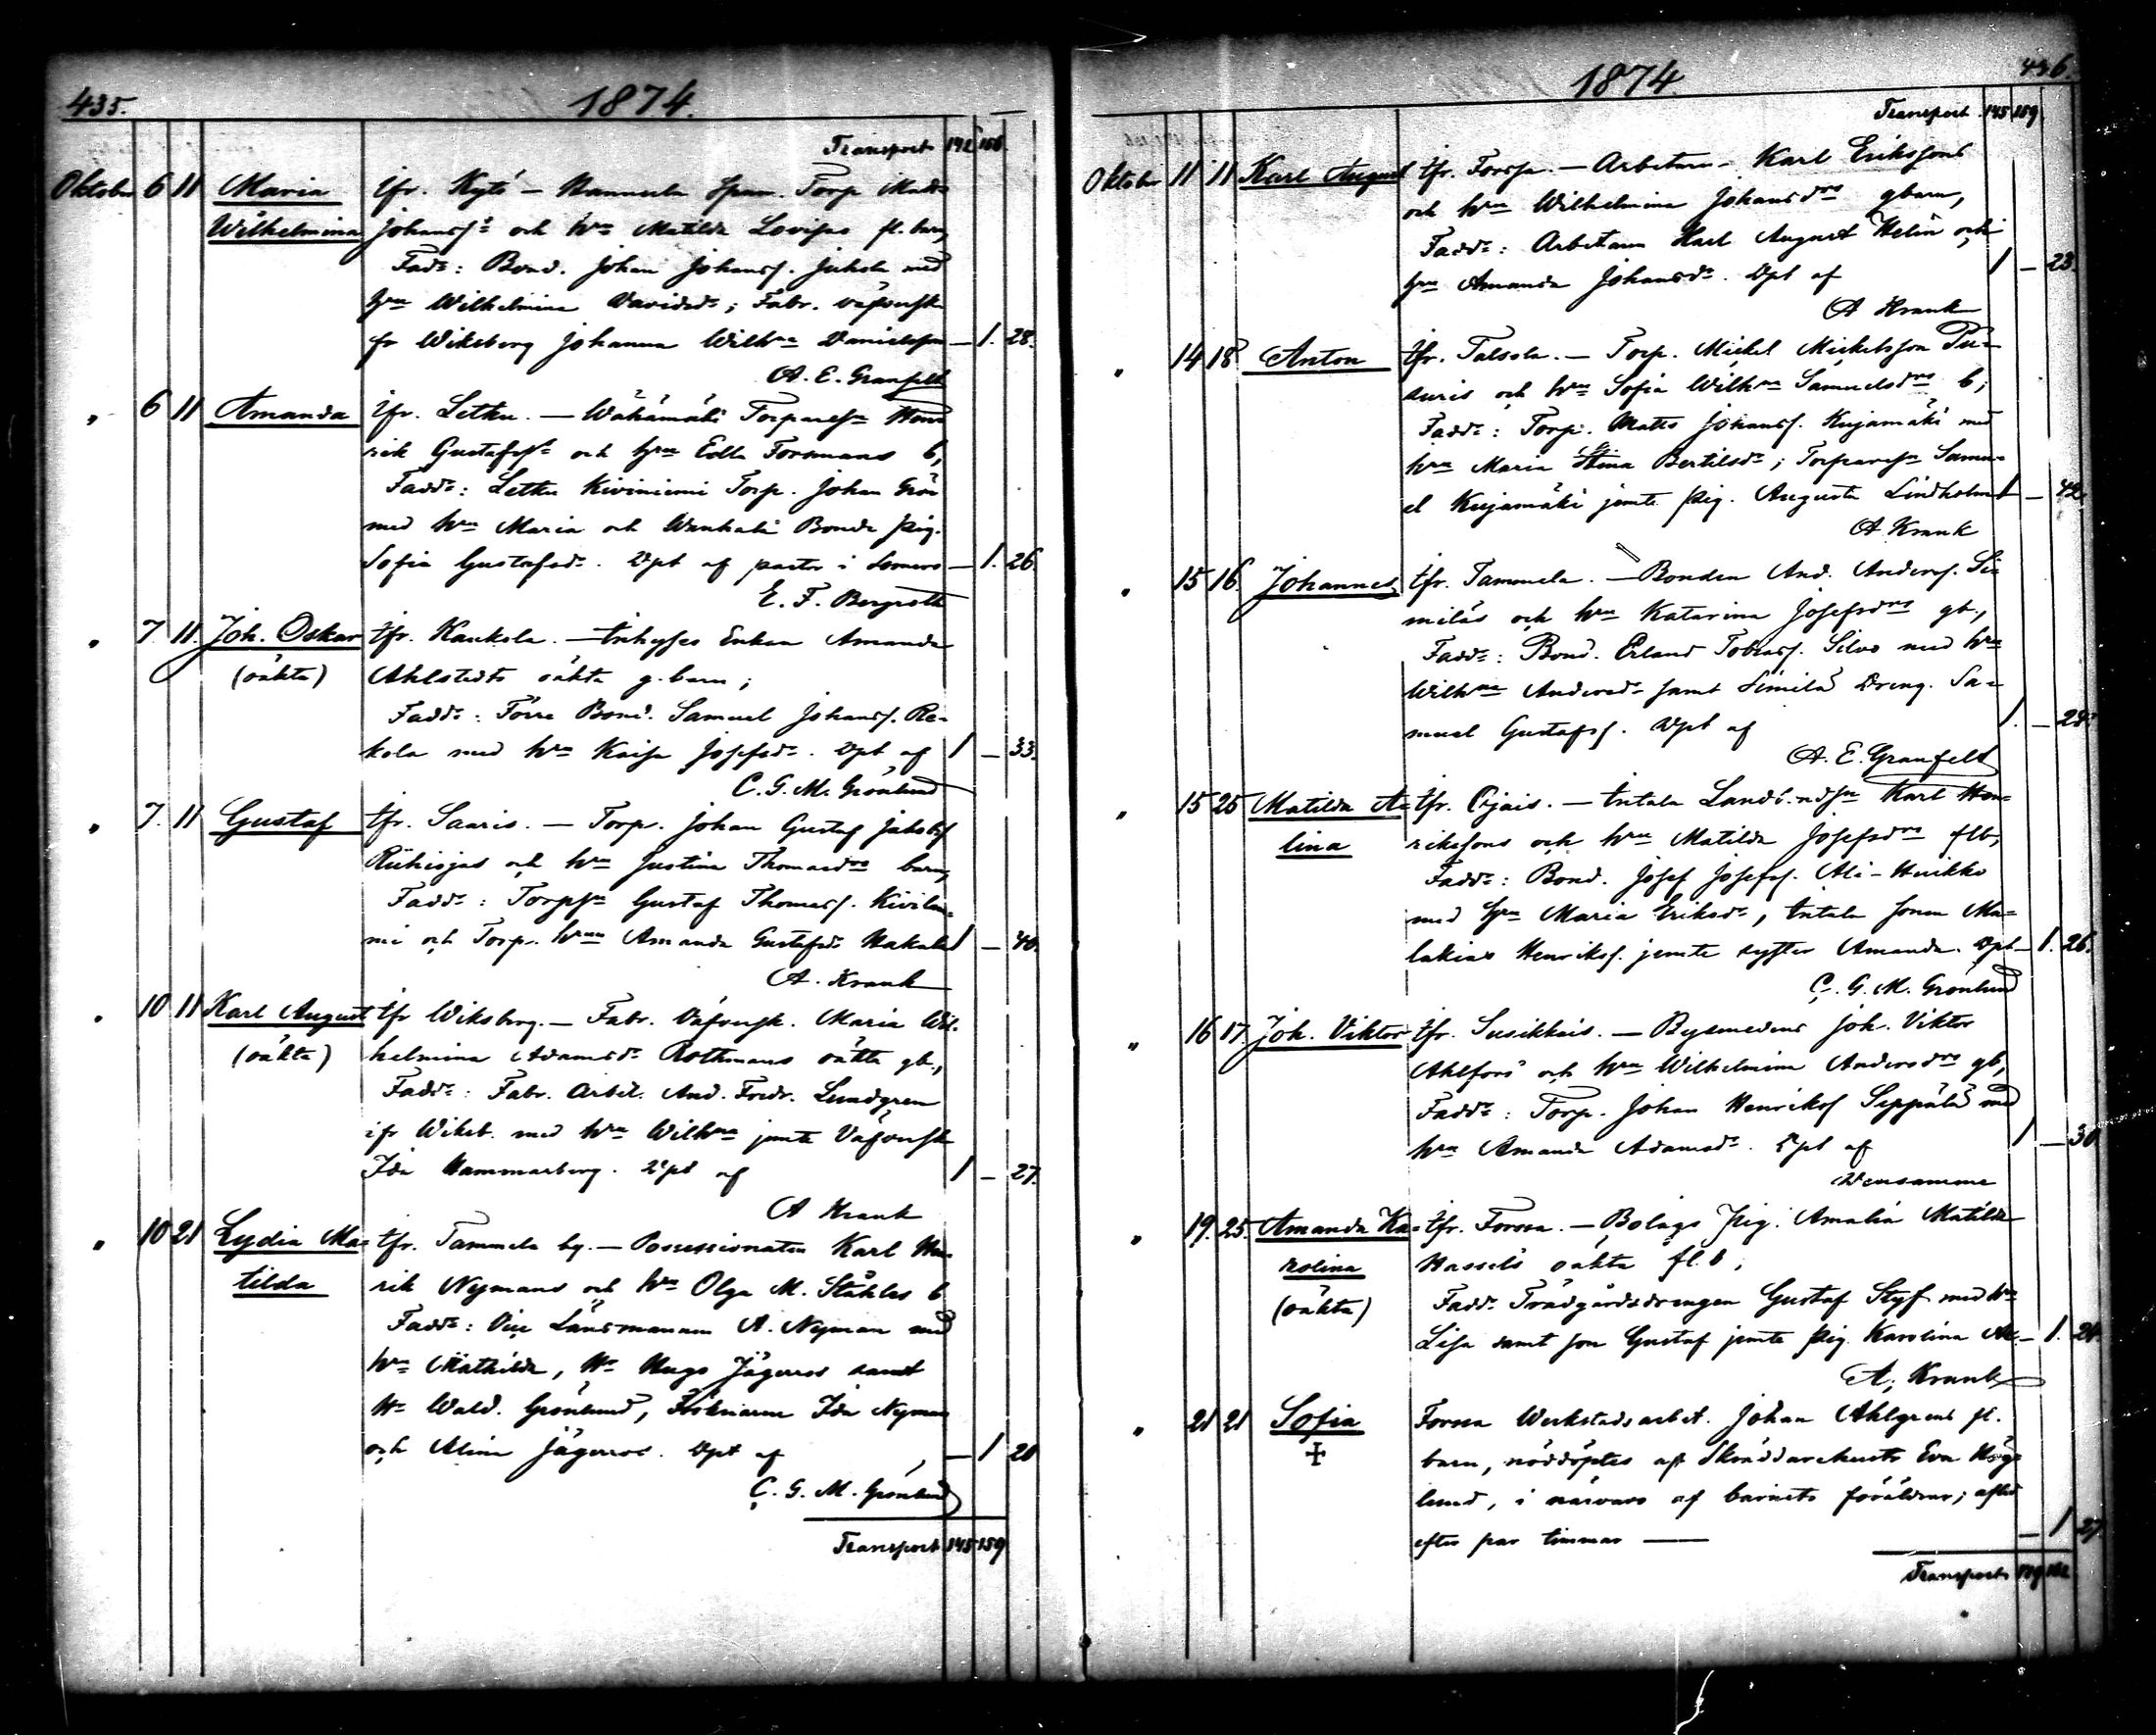 435. 1874.
Transport 142 156.
Oktober 6 11 Maria ifr. Kytö — Mannula Torp
Wilhelmina Johanss:s och h:u Matilda Lovisas fl. barn,
Fadd:r: Bond. Johan Johansf. Jukola med
h:u Wilhelmina Davidsd:r; Fabr. väfversk.
fr Wiksberg Johanna Wilh:na Danielsson — 1. 28.
A. E. Granfelt
" 6 11 Amanda ifr. Letku. — Wähämäki Torpares:n Hen-
rik Gustafss:s och h:u Edla Forsmans b,
Fadd:r: Letku Kiviniemi Torp. Johan Grön
med h:u Maria och Bonde pig.
Sofia Gustafsd:r. Dpt af pastor i Somero — 1. 26
E. F. Bergroth
" 7. 11. Joh. Oskar ifr. Kaukola. — Inhyses Enkan Amanda
(oäkta) Ahlstedts oäkta g. barn;
Fadd:r: Förre Bond. Samuel Johansf. Re-
kola med h:u Kaisa Josefsd:r. Dpt af 1 — 33.
C. G. M. Grönlund
" 7. 11 Gustaf ifr. Saaris. — Torp. Johan Gustaf Jakobsf
Riihiojas och h:u Justina Thomasd:rs barn,
Fadd:r: Torps:n Gustaf Thomasf.
mi och Torp. h:un Amanda Gustafsd:r Hakala 1 — 40.
A. Krank
" 10 11 Karl August ifr Wiksberg. — Fabr. Väfversk. Maria Wil-
(oäkta) helmina Adamsd:r Rothmans oäkta gb.,
Fadd:r: Fabr. Arbet. And. Fredr. Lundgren
ifr Wiksb. med h:u Wilh:na jemte Väfversk
Ida Hammarberg. Dpt af 1 — 27.
A Krank
" 10 21 Lydia Ma- ifr. Tammela by. — Possessionaten Karl Hen-
tilda rik Nymans och h:u Olga M. Ståhles b
Fadd:r: Vice Länsmannen A. Nyman med
h:u Mathilda, H:r Hugo Jägerroos samt
H:r Wald. Grönlund, Fröknarne Ida Nyman
och Alina Jägerroos. Dpt af — 1 20
C. G. M. Grönlund
Transport 145 159
1874 436.
Transport 145 159.
Oktober 11 11 Karl August ifr. Forssa. — Arbetaren Karl Erikssons
och h:u Wilhelmina Johansd:rs gbarn,
Fadd:r: Arbetaren Karl August Helin och
h:u Amanda Johansd:r. Dpt af 1 — 23.
A Krank
" 14 18 Anton ifr. Talsola. — Torp. Mickel Mickelsson Pu-
suris och h:u Sofia Wilh:na Samuelsd:rs b;
Fadd:r: Torp. Matts Johansf. Kujamäki med
h:u Maria Stina Bertilsd:r; Torpares:n Samu-
el Kujamäki jemte pig. Augusta Lindholm 1 — 42.
A Krank
" 15 16. Johannes ifr. Tammela. — Bonden And. Andersf. Si-
miläs och h:u Katarina Josefsd:rs gb.,
Fadd:r: Bond. Erland Tobiasf. Silvo med h:u
Wilh:na Andersd:r samt Similä Dreng. Sa-
muel Gustafsf. Dpt af 1. — 28.
A. E. Granfelt
" 15 25 Matilda A- ifr. Ojais. — Intala Landb.nds:n Karl Hen-
lina rikssons och h:u Matilda Josefsd:rs flb,
Fadd:r: Bond. Josef Josefsf. Ali-Heikko
med h:u Maria Eriksd:r, Intala sonen Ma-
lakias Henriksf. jemte syster Amanda. Dpt — 1. 26.
C. G. M. Grönlund
" 16 17. Joh. Viktor ifr. Susikkais. — Bysmedens Joh. Viktor
Ahlfors och h:u Wilhelmina Andersd:rs gb,
Fadd:r: Torp. Johan Henriksf Seppälä med
h:u Amanda Adamsd:r. Dpt af 1 — 30
Densamme
" 19. 25. Amanda Ka- ifr. Forssa. — Bolags pig. Amalia Matilda
rolina Hassels oäkta fl. b;
(oäkta) Fadd:r Trädgårdsdrengen Gustaf Styf med h:u
Lisa samt son Gustaf jemte pig. Karolina — 1. 24.
A. Krank
" 21 21 Sofia Forssa Werkstadsarbet. Johan Ahlgrens fl.
✝ barn, nöddöptes af Skräddarehustr Eva Hög-
lund, i närvaro af barnets föräldrar; afled
efter par timmar —— — 1 27.
Transport 149 162